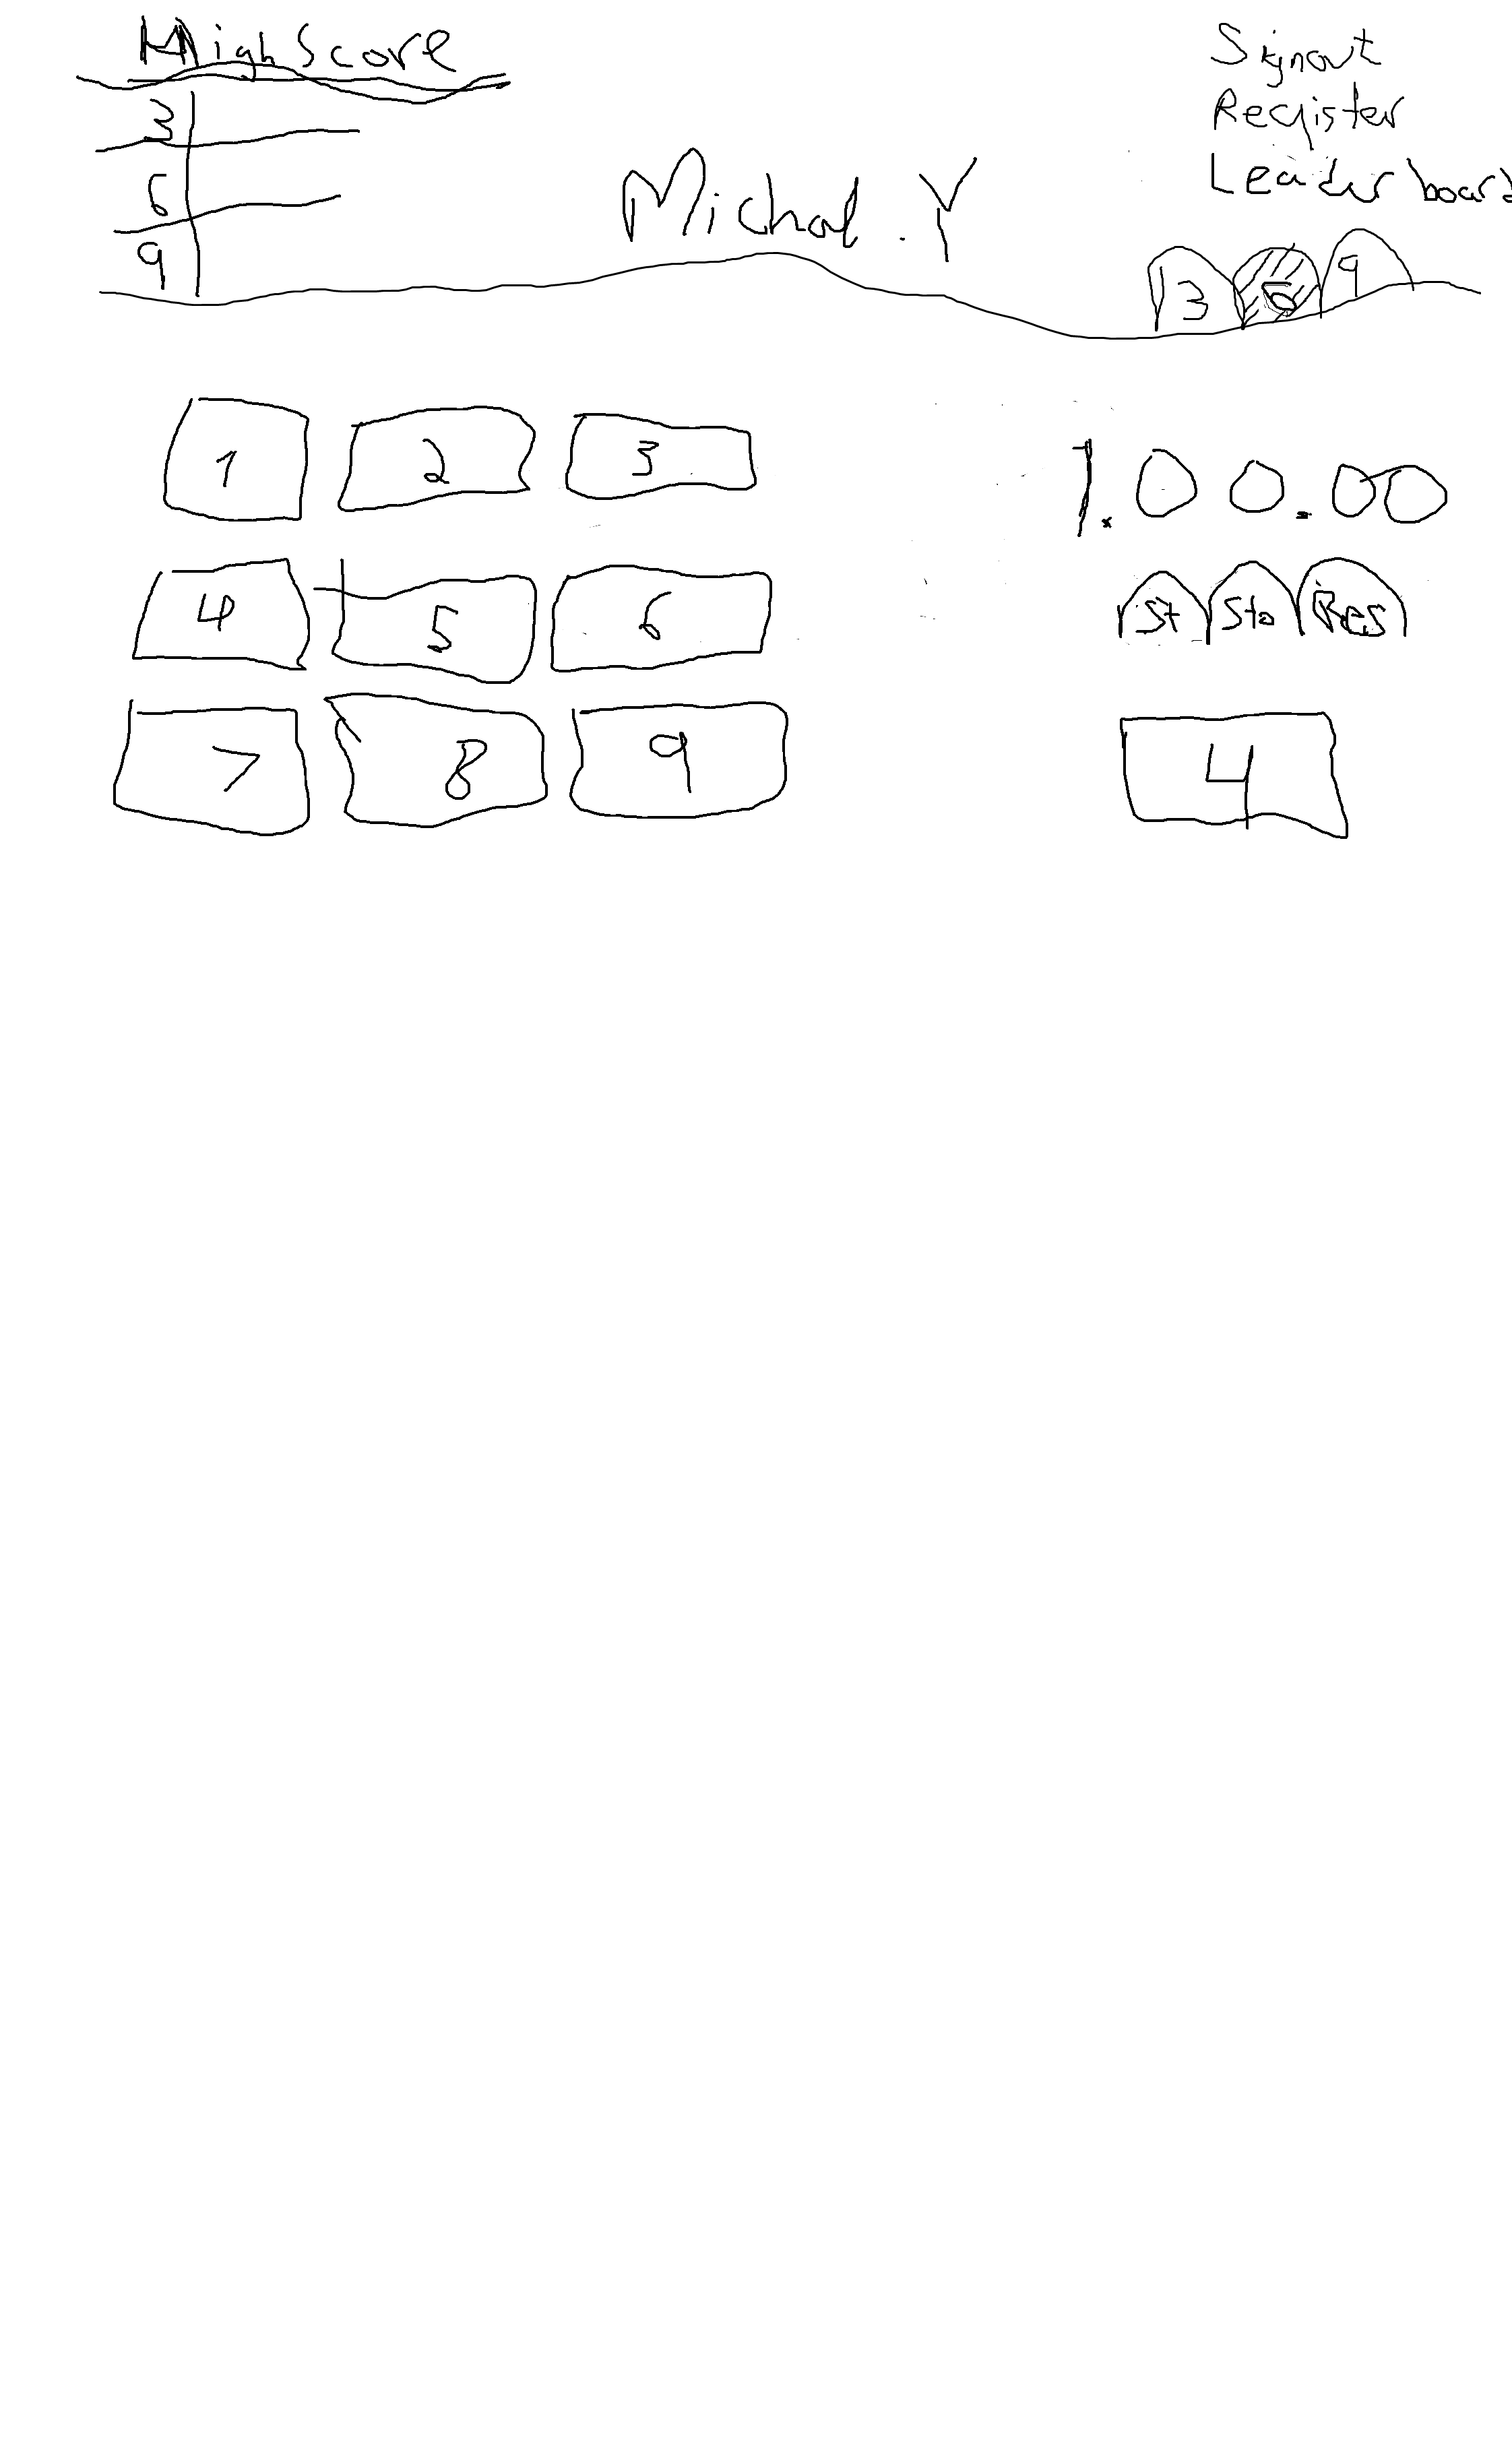 High Score
3
6
9
Michal.Y
Signout
Register
Leaderboard
3 6 9
1 2 3
4 5 6
7 8 9
1.00.00
St Sto Res
4